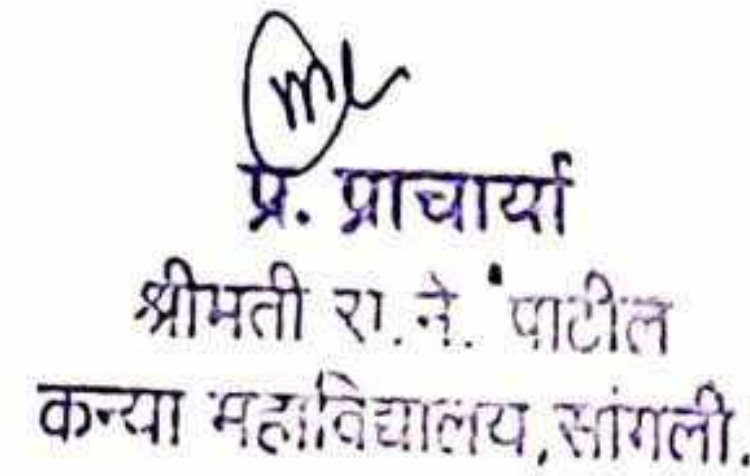 प्र. प्राचार्या
श्रीमती रा. ने. पाटील
कन्या महाविद्यालय, सांगली.